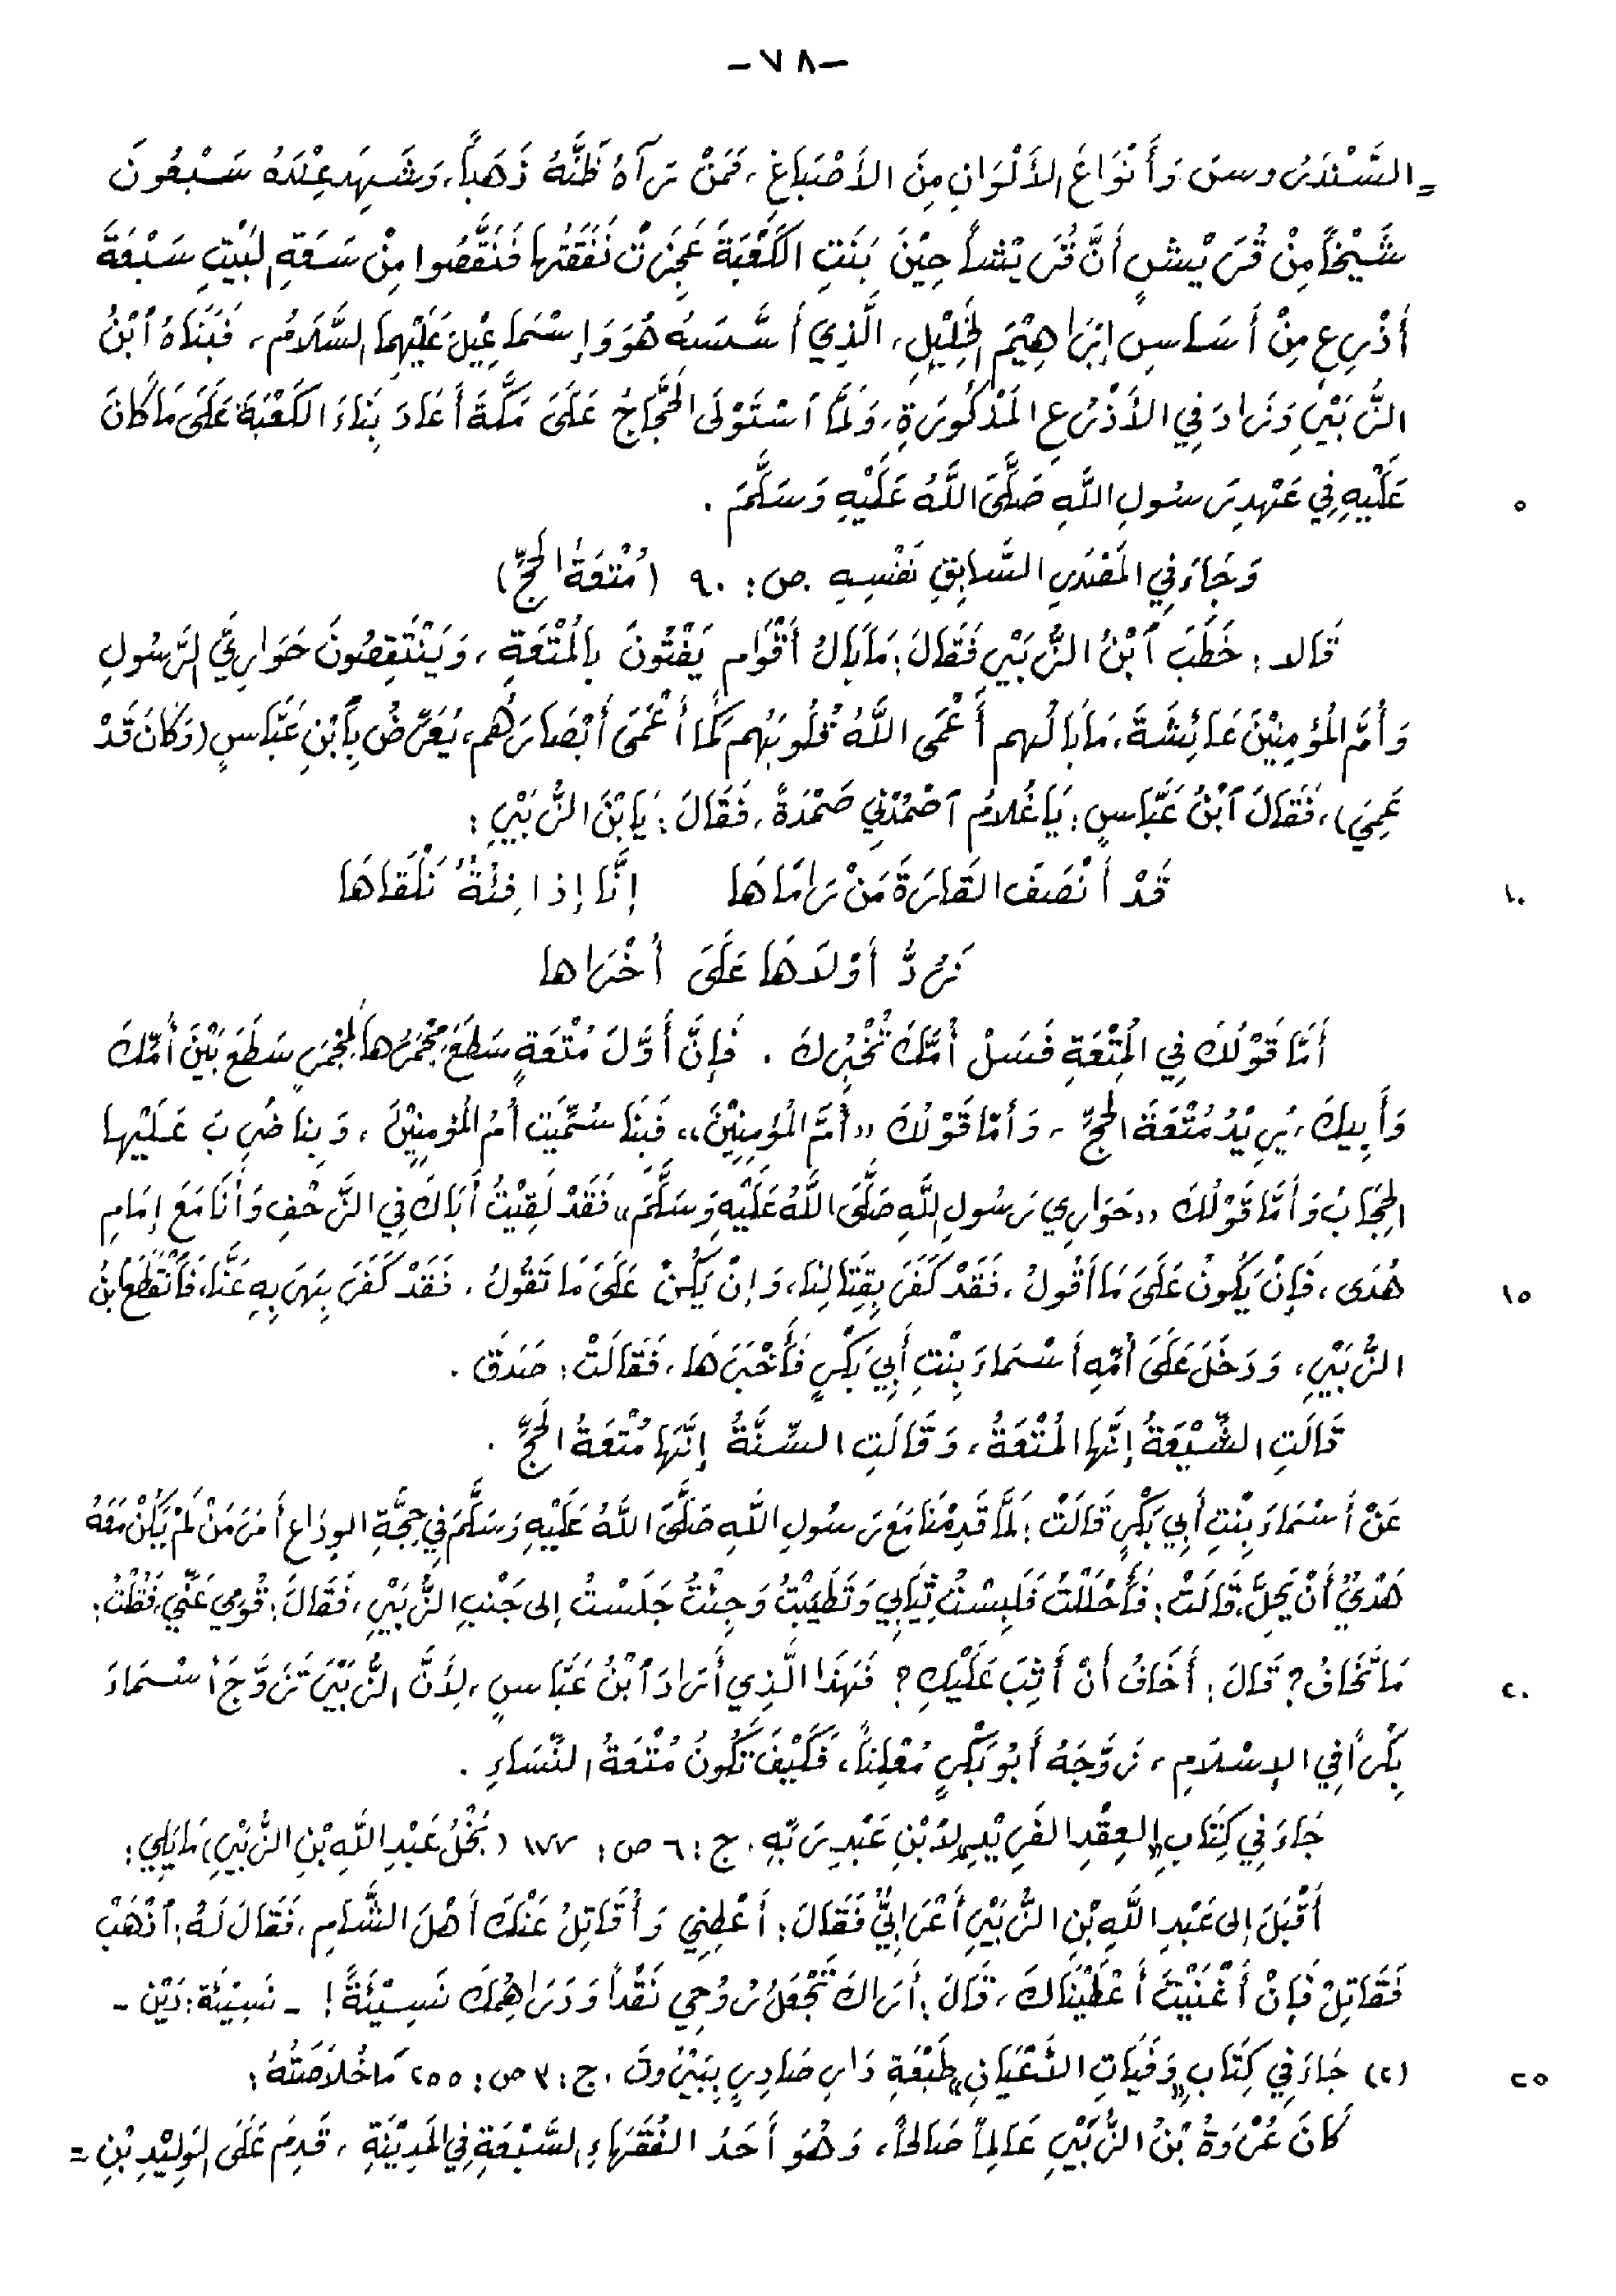 -٧٨-
= السَّنْدَرُوسَ وَأَنْوَاعَ الأَلْوَانِ مِنَ الأَصْبَاغِ، فَمَنْ رَآهُ ظَنَّهُ ذَهَباً، وَشَهِدَ عِنْدَهُ سَبْعُونَ
شَيْخاً مِنْ قُرَيْشٍ أَنَّ قُرَيْشاً حِيْنَ بَنَتِ الكَعْبَةَ عَجِزَتْ نَفَقَتُهَا فَنَقَّصُوا مِنْ سَعَةِ البَيْتِ سَبْعَةَ
أَذْرِعٍ مِنْ أَسَاسِ إِبْرَاهِيْمَ الخَلِيْلِ، الَّذِي أَسَّسَهُ هُوَ وَإِسْمَاعِيْلَ عَلَيْهِمَا السَّلَامُ، فَبَنَاهُ ٱبْنُ
الزُّبَيْرِ وَزَادَ فِي الأَذْرُعِ المَذْكُورَةِ، وَلَمَّا ٱسْتَوْلَى الحَجَّاجُ عَلَى مَكَّةَ أَعَادَ بِنَاءَ الكَعْبَةَ عَلَى مَا كَانَ
عَلَيْهِ فِي عَهْدِ رَسُولِ اللَّهِ صَلَّى اللَّهُ عَلَيْهِ وَسَلَّمَ . ٥
وَجَاءَ فِي المَصْدَرِ السَّابِقِ نَفْسِهِ ص: ٩٠ (مُتْعَةُ الحَجِّ)
قَالَ: خَطَبَ ٱبْنُ الزُّبَيْرِ فَقَالَ: مَا بَالُ أَقْوَامٍ يَفْتُونَ بِالمُتْعَةِ، وَيَنْتَقِصُونَ حَوَارِيَّ الرَّسُولِ
وَأُمَّ المُؤْمِنِيْنَ عَائِشَةَ، مَا بَالُهم أَعْمَى اللَّهُ قُلُوبَهُم كَمَا أَعْمَى أَبْصَارَهُم، يُعَرِّضُ بِٱبْنِ عَبَّاسٍ (وَكَانَ قَدْ
عَمِيَ)، فَقَالَ ٱبْنُ عَبَّاسٍ: يَا غُلَامُ ٱصْمُدْنِي صَمْدَةً، فَقَالَ: يَا بْنَ الزُّبَيْرِ:
قَدْ أَنْصَفَ القَارَةَ مَنْ رَامَاهَا إِنَّا إِذَا فِئَةٌ نَلْقَاهَا ١٠
نَرُدُّ أَوْلَاهَا عَلَى أُخْرَاهَا
أَمَّا قَوْلُكَ فِي المُتْعَةِ فَسَلْ أُمَّكَ تُخْبِرُكَ . فَإِنَّ أَوَّلَ مُتْعَةٍ سَطَعَ مِجْمَرُهَا لَمِجْمَرٍ سَطَعَ بَيْنَ أُمِّكَ
وَأَبِيكَ، يُرِيْدُ مُتْعَةَ الحَجِّ، وَأَمَّا قَوْلُكَ «أُمَّ المُؤْمِنِيْنَ» فَبِنَا سُمِّيَت أُمُّ المُؤْمِنِيْنَ، وَبِنَا ضُرِبَ عَلَيْهَا
الحِجَابُ وَأَمَّا قَوْلُكَ «حَوَارِي رَسُولِ اللَّهِ صَلَّى اللَّهُ عَلَيْهِ وَسَلَّمَ» فَقَدْ لَقِيْتُ أَبَاكَ فِي الزَّحْفِ وَأَنَا مَعَ إِمَامِ
هُدَى، فَإِنْ يَكُونُ عَلَى مَا أَقُولُ، فَقَدْ كَفَرَ بِقِتَالِنَا، وَإِنْ يَكُنْ عَلَى مَا تَقُولُ، فَقَدْ كَفَرَ بِهَرَبِهِ عَنَّا، فَٱنْقَطَعَ ابْنُ ١٥
الزُّبَيْرِ، وَدَخَلَ عَلَى أُمِّهِ أَسْمَاءَ بِنْتِ أَبِي بَكْرٍ فَأَخْبَرَهَا، فَقَالَتْ: صَدَقَ .
قَالَتِ الشِّيْعَةُ إِنَّهَا المُتْعَةُ، وَقَالَتِ السُّنَّةُ إِنَّهَا مُتْعَةُ الحَجِّ .
عَنْ أَسْمَاءَ بِنْتِ أَبِي بَكْرٍ قَالَتْ: لَمَّا قَدِمْنَا مَعَ رَسُولِ اللَّهِ صَلَّى اللَّهُ عَلَيْهِ وَسَلَّمَ فِي حِجَّةِ الوِدَاعِ أَمَرَ مَنْ لَمْ يَكُنْ مَعَهُ
هَدْيٌ أَنْ يَحِلَّ، قَالَتْ: فَأَحْلَلْتُ فَلَبِسْتُ ثِيَابِي وَتَطَيَّبْتُ وَجِئْتُ جَلَسْتُ إِلى جَنْبِ الزُّبَيْرِ، فَقَالَ: قُومِي عَنِّي، فَقُلْتُ:
مَا تَخَافُ؟ قَالَ: أَخَافُ أَنْ أَثِبَ عَلَيْكِ؟ فَهَذَا الَّذِي أَرَادَ ٱبْنُ عَبَّاسٍ، لِأَنَّ الزُّبَيْرَ تَزَوَّجَ أَسْمَاءَ ٢٠
بِكْراً فِي الإِسْلَامِ، زَوَّجَهُ أَبُو بَكْرٍ مُعْلِناً، فَكَيْفَ تَكُونُ مُتْعَةُ النِّسَاءِ .
جَاءَ فِي كِتَابِ «العِقْدِ الفَرِيْدِ» لِابْنِ عَبْدِ رَبِّهِ، ج: ٦ ص: ١٧٧ (بُخْلُ عَبْدِ اللَّهِ بْنِ الزُّبَيْرِ) مَا يَلِي:
أَقْبَلَ إِلى عَبْدِ اللَّهِ بْنِ الزُّبَيْرِ أَعْرَابِيٌّ فَقَالَ: أَعْطِنِي وَأُقَاتِلُ عَنْكَ أَهْلَ الشَّامِ، فَقَالَ لَهُ: ٱذْهَبْ
فَقَاتِلْ فَإِنْ أَغْنَيْتَ أَعْطَيْنَاكَ، قَالَ: أَرَاكَ تَجْعَلُ رُوْحِي نَقْداً وَدَرَاهِمَكَ نَسِيْئَةً! - نَسِيْئَة: دَيْن -
(٢) جَاءَ فِي كِتَابِ «وَفَيَاتِ الأَعْيَانِ» طَبْعَةِ دَارِ صَادِرٍ بِبَيْرُوتَ، ج: ٣ ص: ٢٥٥ مَا خُلَاصَتُهُ: ٢٥
كَانَ عُرْوَةُ بْنُ الزُّبَيْرِ عَالِماً صَالِحاً، وَهُوَ أَحَدُ الفُقَهَاءِ السَّبْعَةِ فِي المَدِيْنَةِ، قَدِمَ عَلَى الوَلِيْدِ بْنِ =